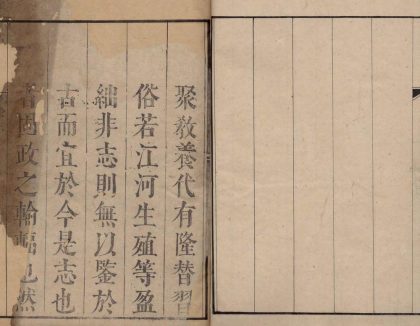 聚教養代有隆替習
俗若江河生殖等盈
絀非志則無以鑒於
古而宜於今是志也
者國政之輪輻也然